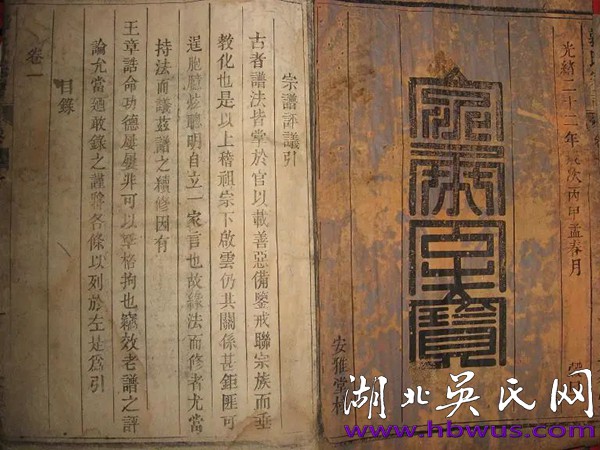 光緒二十二年歲次丙申孟春月
安雅堂梓
宗譜評議引
古者譜法皆掌於官以載善惡備鑒戒聯宗族而垂
教化也是以上稽祖宗下啟雲仍其關係甚鉅匪可
逞胸臆炫聰明自立一家言也故緣法而修者尤當
持法而議茲譜之續修因有
王章誥命功德屢屢非可以格拘也竊效老譜之評
論允當廼敢錄之謹將各條以列於左是為引
目錄
卷一
湖北吴氏网
www.hbwus.com